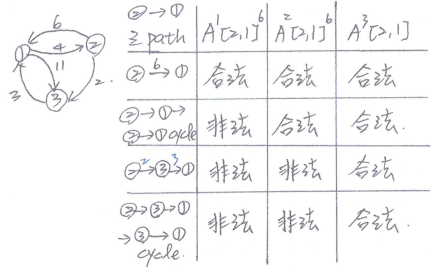 6
① 4 ②
11
3 ③ 2
②→①
之 path A¹[2,1]⁶ A²[2,1]⁶ A³[2,1]
② 6→ ① 合法 合法 合法
②→①→
②→① cycle 非法 合法 合法.
② 2→ ③ 3→ ① 非法 非法 合法
②→③→①
→③→① 非法 非法 合法.
cycle.